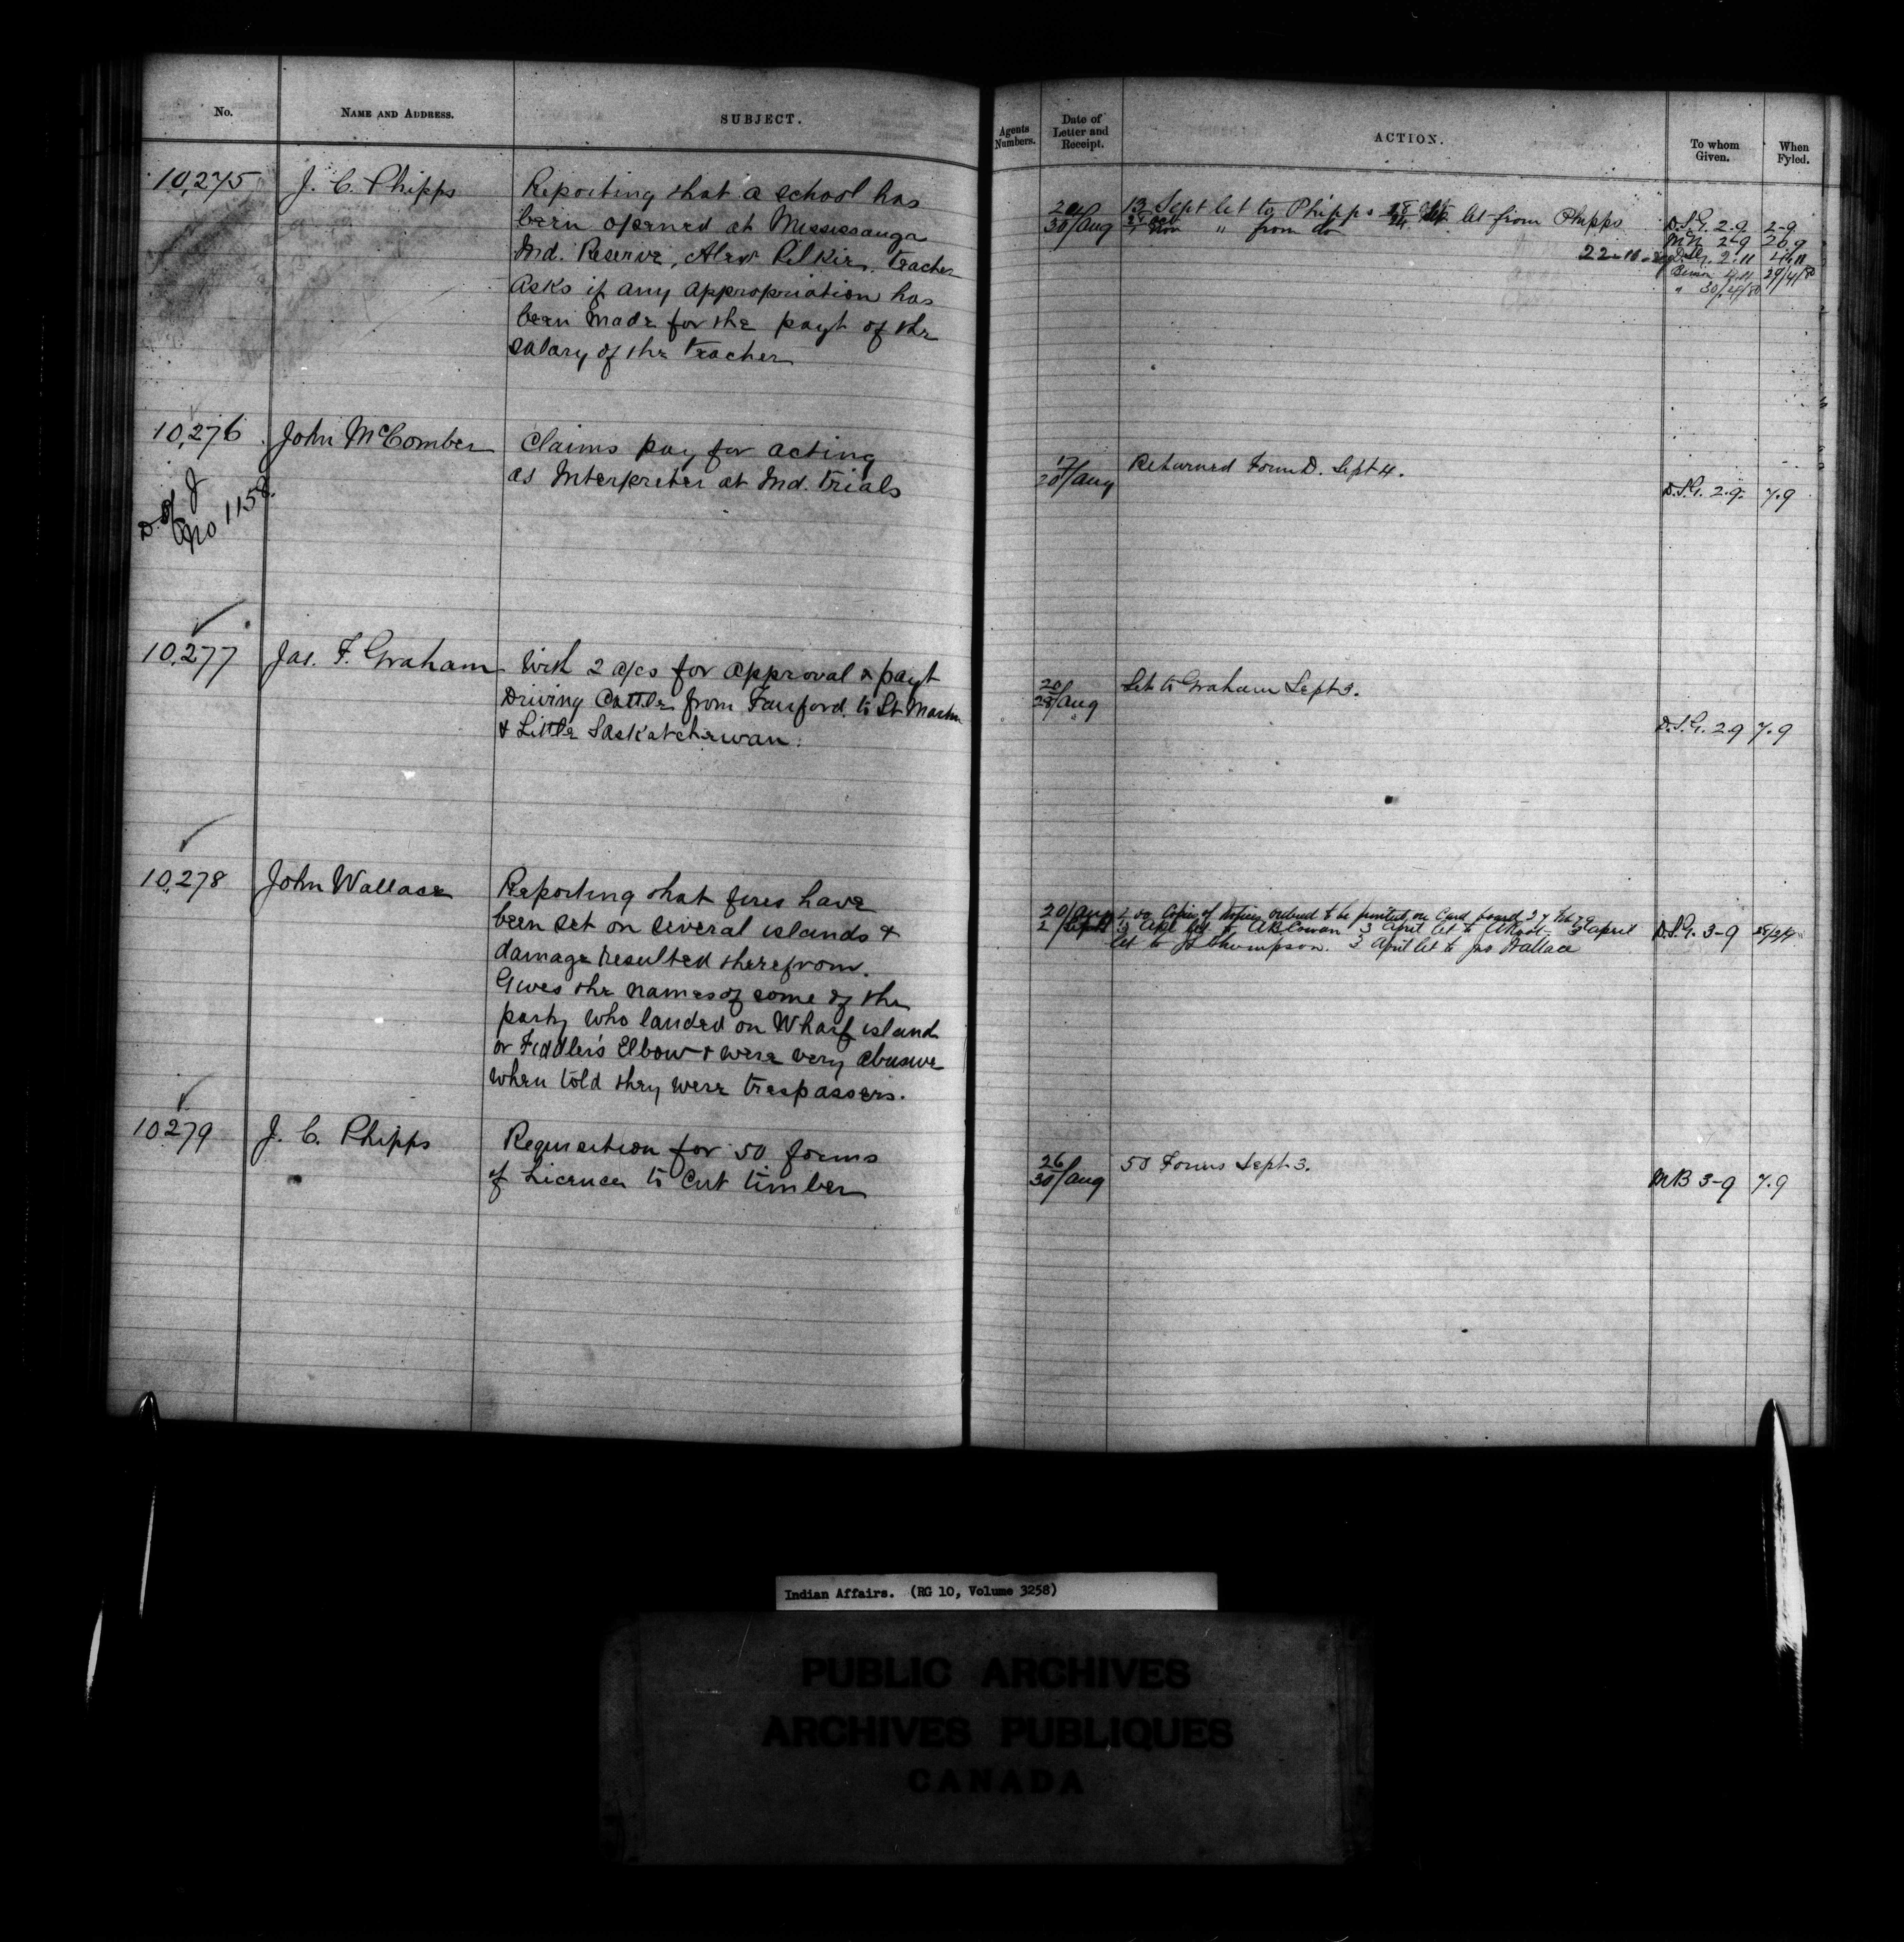 No.
NAME AND ADDRESS.
SUBJECT.
10,275
J. C. Phipps
Reporting that a school has
been opened at Mississauga
Ind. Reserve, Alexr Pilkie, teacher
Asks if any appropriation has
been made for the payt of the
salary of the teacher
10,276
John McComber
Claims pay for acting
as Interpreter at Ind. trials
D. of J
No 1158
10,277
Jas. F. Graham
With 2 a/cs for approval & payt
Driving Cattle from Fairford to St Martin
& Little Saskatchewan.
10,278
John Wallace
Reporting that fires have
been set on several islands &
damage resulted therefrom.
Gives the names of some of the
party who landed on Wharf island
or Fiddler's Elbow & were very abusive
when told they were trespassers.
10279
J. C. Phipps
Requisition for 50 forms
of Licence to cut timber
Agents
Numbers.
Date of
Letter and
Receipt.
ACTION.
To whom
Given.
When
Fyled.
30/Aug
13 Sept let to Phipps let from Phipps
" from do
22-10
D.S.G. 2.9. 2-9
2.11 4.11
4.11 29/4/80
" 30/4/80
17
20/Aug
Returned Form D. Sept 4.
D.S.G. 2.9. 7.9
20
28/Aug
Let to Graham Sept 3.
D.S.G. 2.9 7.9
20/Aug
2/Sept
Copies of Notices ordered to be printed on Card board 27
3 April let to A B Cowan 3 April let to 3 April
let to Thompson. 3 April let to Jno Wallace
D.S.G. 3-9
26
30/Aug
50 Forms Sept 3.
MB 3-9 7.9
Indian Affairs. (RG 10, Volume 3258)
PUBLIC ARCHIVES
ARCHIVES PUBLIQUES
CANADA